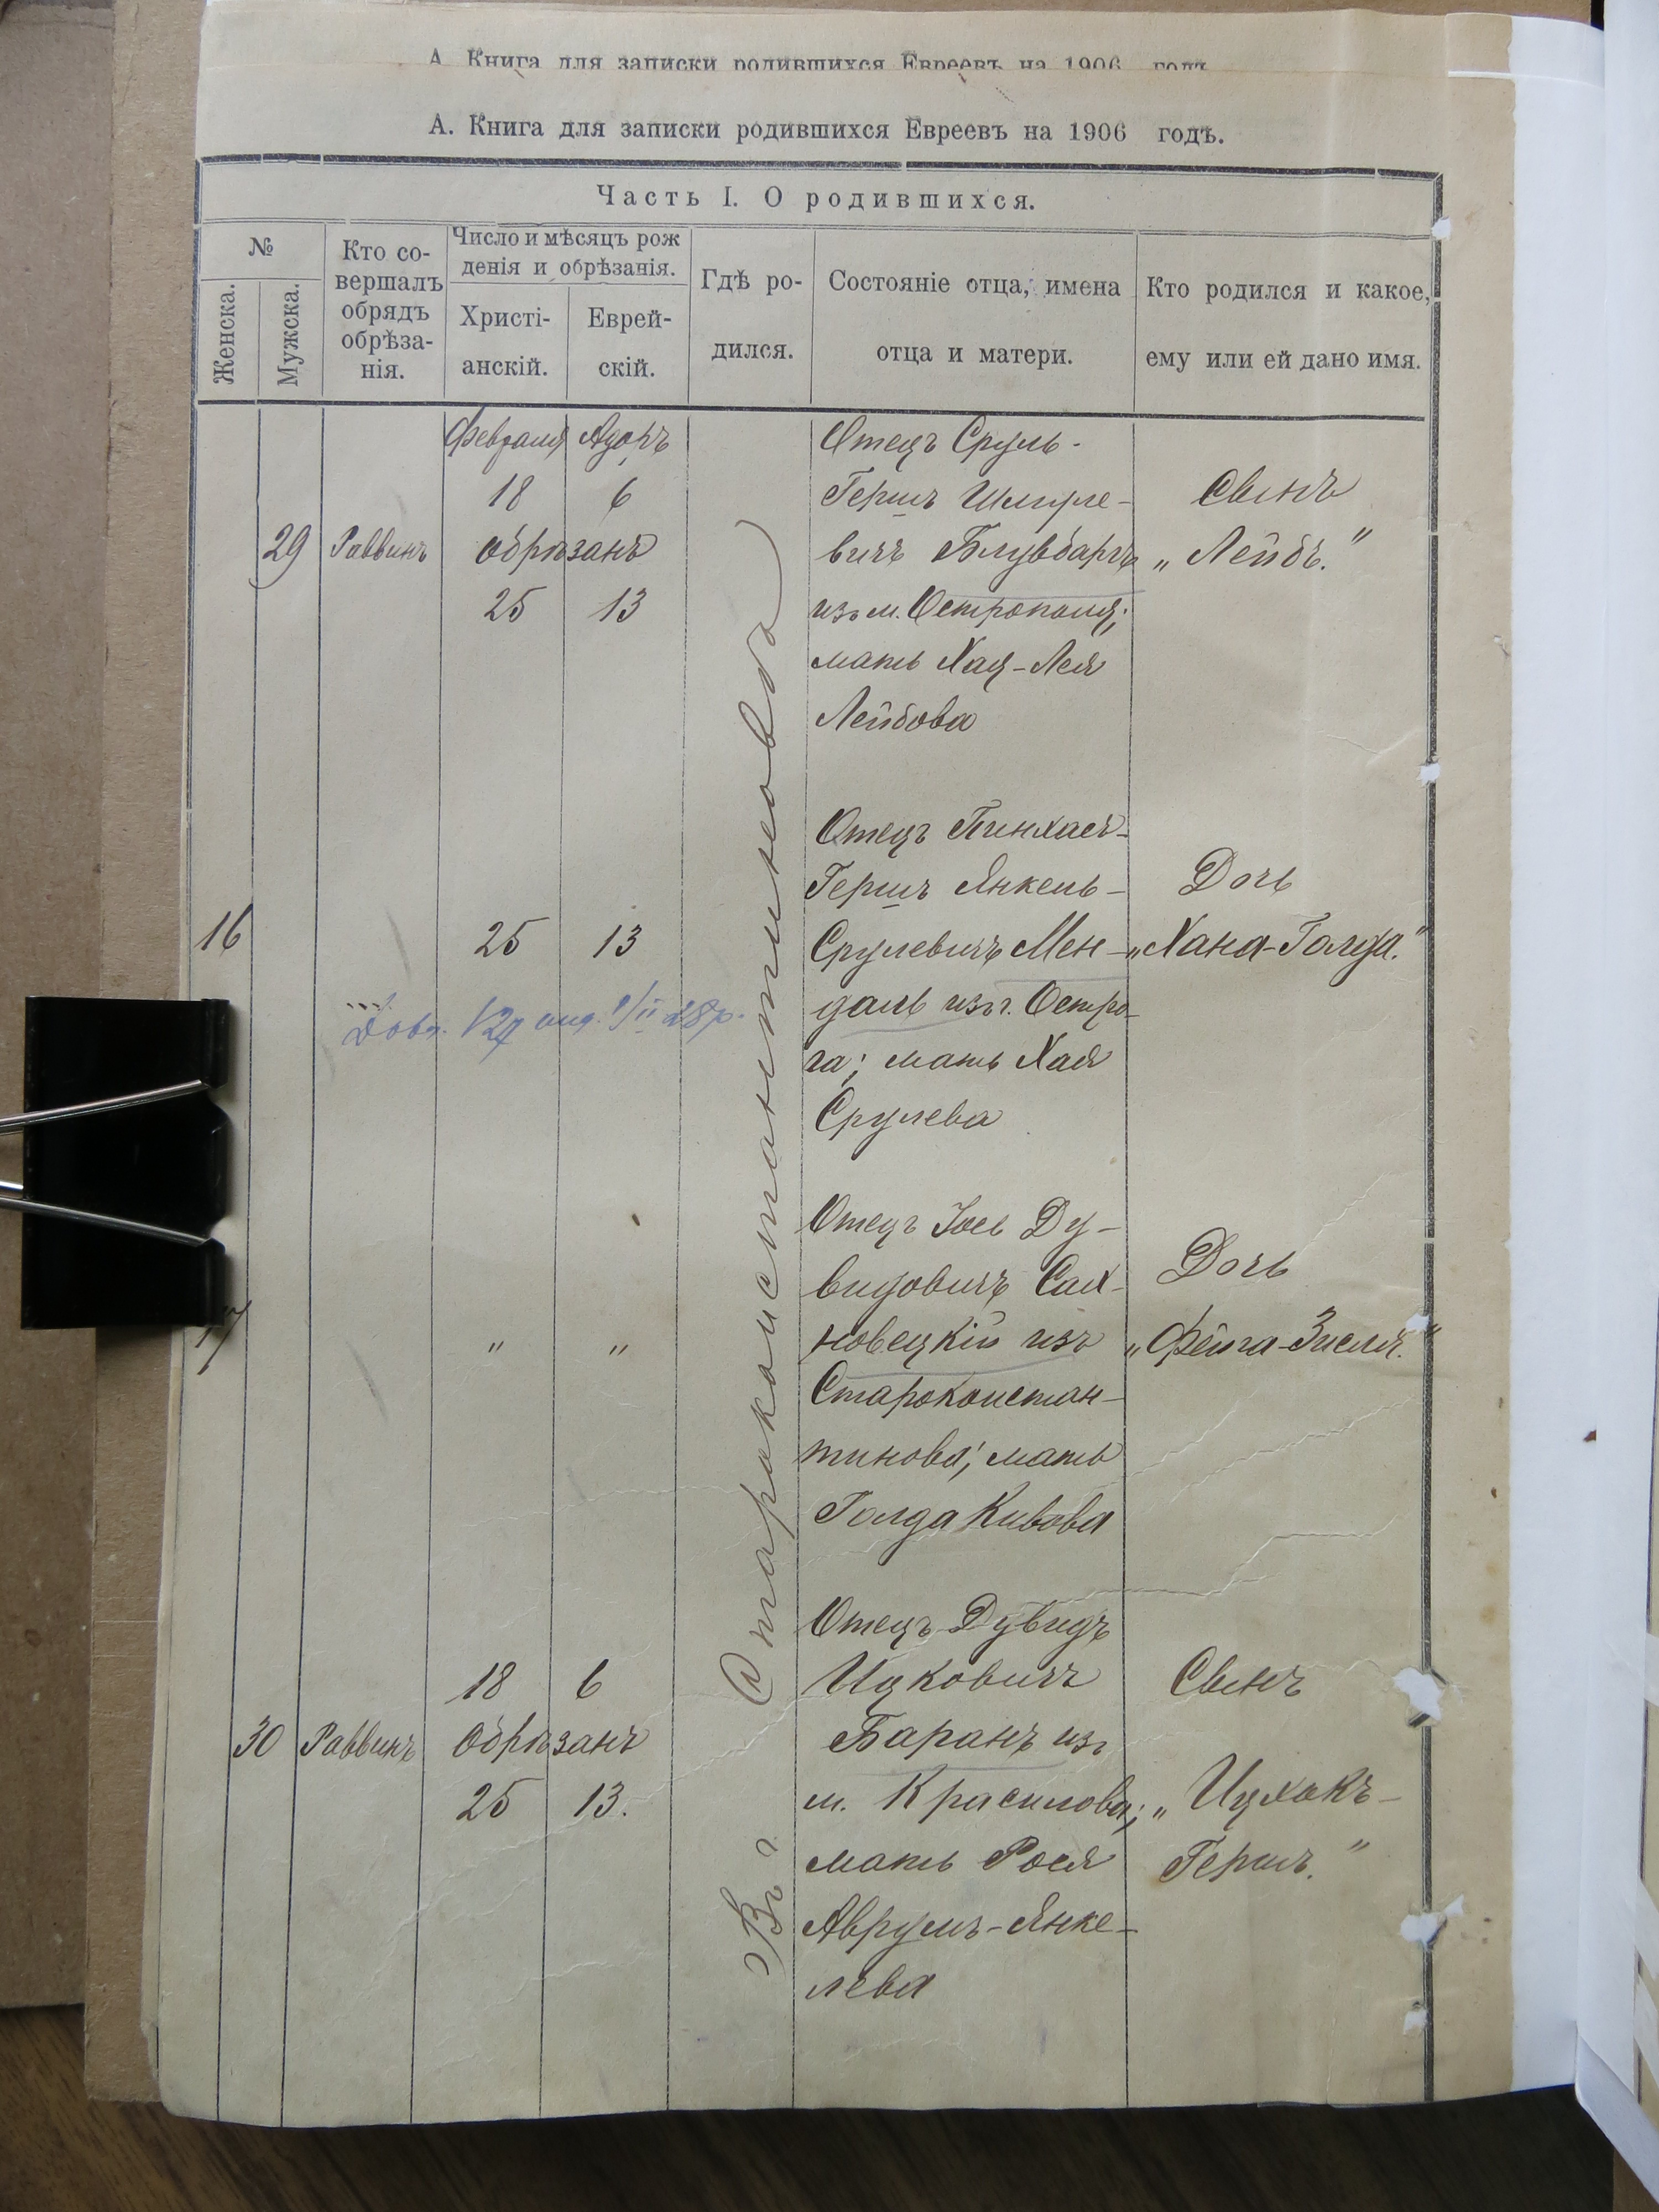 А. Книга для записки родившихся Евреевъ на 1906 годъ
А. Книга для записки родившихся Евреевъ на 1906 годъ.
Часть I. О родившихся.
№
Женска.
Мужска.
Кто со-
вершалъ
обрядъ
обрѣза-
нія.
Число и мѣсяцъ рож
денія и обрѣзанія.
Христі-
анскій.
Еврей-
скій.
Гдѣ ро-
дился.
Состояніе отца, имена
отца и матери.
Кто родился и какое,
ему или ей дано имя.
Въ г. Староконстантиновѣ
Февраля Адоръ
18 6
29 Раввинъ обрѣзанъ
25 13
Отецъ Сруль-
Гершъ Шмуле-
вичъ Блувбартъ
изъ м. Острополя;
мать Хая-Лея
Лейбова
Сынъ
„Лейбъ.“
16 25 13
Отецъ Пинхасъ-
Гершъ Янкель-
Срулевичъ Мен-
даль изъ г. Остро-
га; мать Хая
Срулева
Дочь
„Хана-Голда.“
17 " "
Отецъ Іось Ду-
видовичъ Сах-
новецкій изъ
Староконстан-
тинова; мать
Голда Кивова
Дочь
„Фейга-Зисля.“
18 6
30 Раввинъ Обрѣзанъ
25 13.
Отецъ Дувидъ
Ицковичъ
Баранъ изъ
м. Красилова;
мать Рося
Аврумъ-Янке-
лева
Сынъ
„Ицхакъ-
Гершъ.“